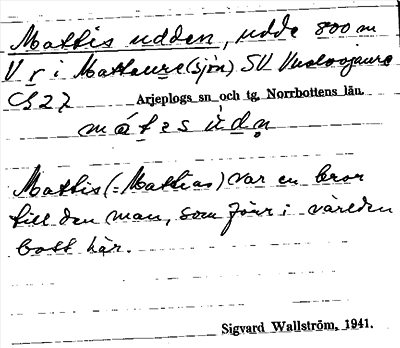 Mattis udden, udde 800 m
V r i Mattaure (sjön) SV Vuolvojaure
Ch 27 Arjeplogs sn och tg, Norrbottens län.
Mattis (= Mattias) var en bror
till den man, som förr i världen
bott här.
Sigvard Wallström, 1941.